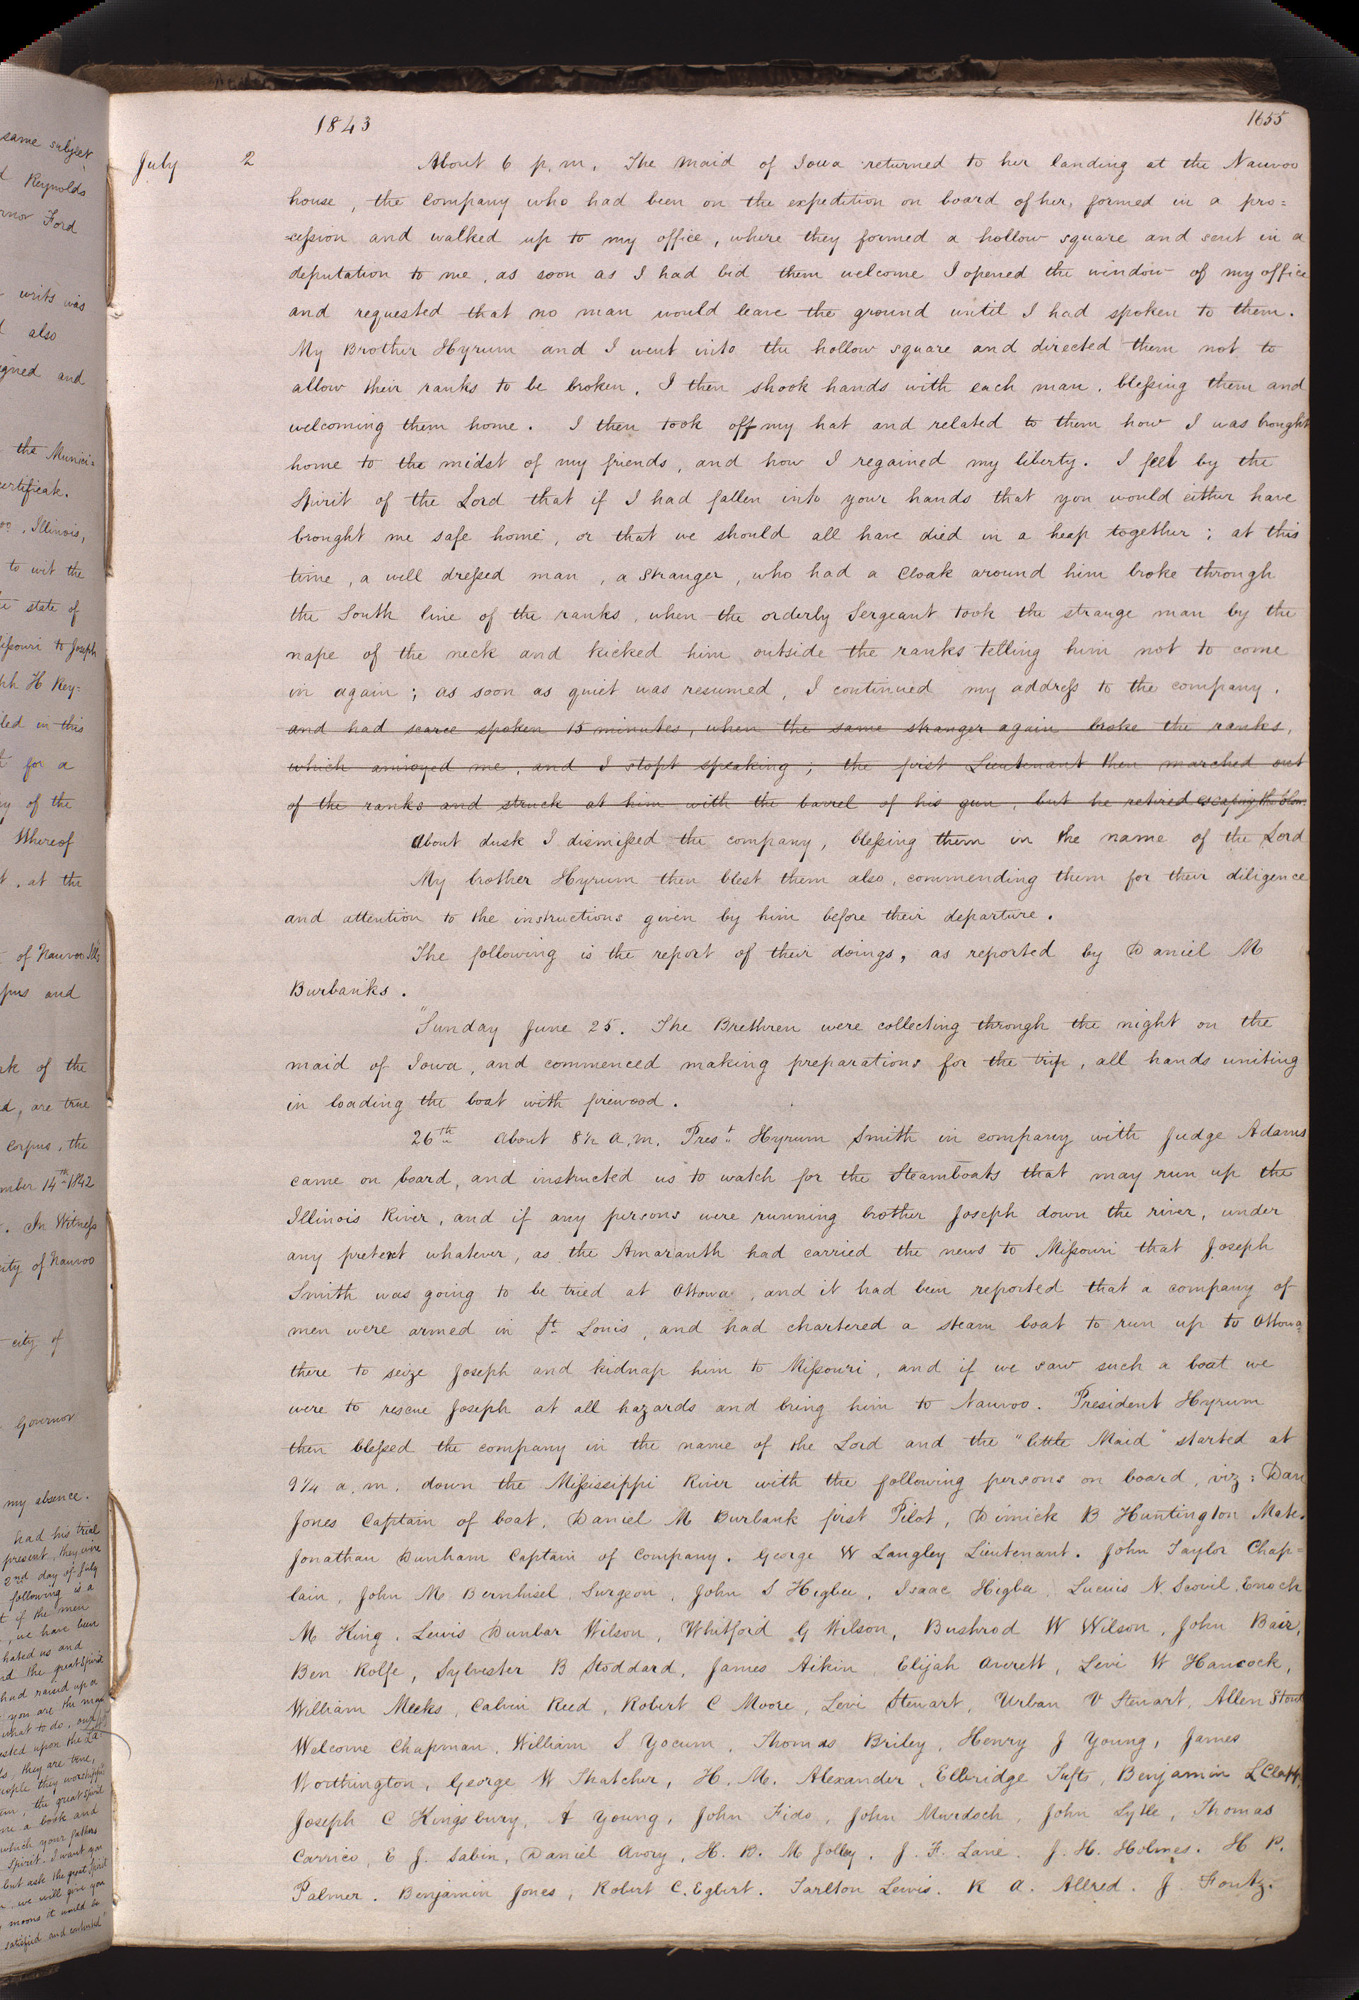 same subject
Reynolds
Ford
writs was
also
and
the Munici=
certificate.
Illinois,
to wit the
state of
to Joseph
H Rey=
in this
for a
of the
Whereof
at the
of Nauvoo Ills
and
of the
are true
corpus, the
14th 1842
. In Witness
city of Nauvoo
city of
Governor
my absence.
had his trial
present, they were
2nd day of July
following is a
if the men
, we have been
hated us and
the great Spirit
had raised up a
you are the man
what to do, our
upon the
they are true,
people they worshipped
the great Spirit
me a book and
which your fathers
Spirit. I want you
but ask the great Spirit
we will give you
moons it would be
satisfied and contented"
1843 1655
July 2 About 6 p.m. The Maid of Iowa returned to her landing at the Nauvoo
house, the company who had been on the expedition on board of her, formed in a pro=
=cession and walked up to my office, where they formed a hollow square and sent in a
deputation to me, as soon as I had bid them welcome I opened the window of my office
and requested that no man would leave the ground until I had spoken to them.
My Brother Hyrum and I went into the hollow square and directed them not to
allow their ranks to be broken. I then shook hands with each man. blessing them and
welcoming them home. I then took off my hat and related to them how I was brought
home to the midst of my friends, and how I regained my liberty. I feel by the
Spirit of the Lord that if I had fallen into your hands that you would either have
brought me safe home, or that we should all have died in a heap together; at this
time, a well dressed man, a stranger, who had a cloak around him broke through
the South line of the ranks, when the orderly Sergeant took the strange man by the
nape of the neck and kicked him outside the ranks telling him not to come
in again; as soon as quiet was resumed, I continued my address to the company.
and had scarce spoken 15 minutes, when the same stranger again broke the ranks,
which annoyed me, and I stopt speaking; the first Lieutenant then marched out
of the ranks and struck at him with the barrel of his gun, but he retired escaping the blow.
About dusk I dismissed the company, blessing them in the name of the Lord
My brother Hyrum then blest them also, commending them for their diligence
and attention to the instructions given by him before their departure.
The following is the report of their doings, as reported by Daniel M
Burbanks.
"Sunday June 25. The Brethren were collecting through the night on the
maid of Iowa, and commenced making preparations for the trip, all hands uniting
in loading the boat with firewood.
26th About 8½ a.m. Prest. Hyrum Smith in company with Judge Adams
came on board, and instructed us to watch for the Steamboats that may run up the
Illinois River, and if any persons were running brother Joseph down the river, under
any pretext whatever, as the Amaranth had carried the news to Missouri that Joseph
Smith was going to be tried at Ottowa, and it had been reported that a company of
men were armed in St. Louis, and had chartered a steam boat to run up to Ottowa
there to seize Joseph and kidnap him to Missouri, and if we saw such a boat we
were to rescue Joseph at all hazards and bring him to Nauvoo. President Hyrum
then blessed the company in the name of the Lord and the "little Maid" started at
9¼ a.m. down the Mississippi River with the following persons on board, viz: Dan
Jones Captain of boat, Daniel M Burbank first Pilot, Dimick B Huntington Mate.
Jonathan Dunham Captain of Company. George W Langley Lieutenant. John Taylor Chap=
lain, John M Bernhisel Surgeon, John S Higbee, Isaac Higbee Lucius N. Scovil, Enoch
M King, Lewis Dunbar Wilson, Whitford G Wilson, Bushrod W Wilson, John Bair,
Ben Rolfe, Sylvester B Stoddard, James Aikin, Elijah Averett, Levi W Hancock,
William Meeks, Calvin Reed, Robert C Moore, Levi Stewart, Urban V Stewart, Allen Stout
Welcome Chapman, William S Yocum, Thomas Briley, Henry J Young, James
Worthington, George W Thatcher, H. M. Alexander, Elbridge Tufts, Benjamin L Clapp,
Joseph C Kingsbury, A Young, John Fido, John Murdoch, John Lytle, Thomas
Carrico, E J. Sabin, Daniel Avery, H. B. M Jolley. J. F. Lane. J. H. Holmes. H P.
Palmer. Benjamin Jones, Robert C. Egbert. Tarlton Lewis. R A. Allred. J. Foutz.